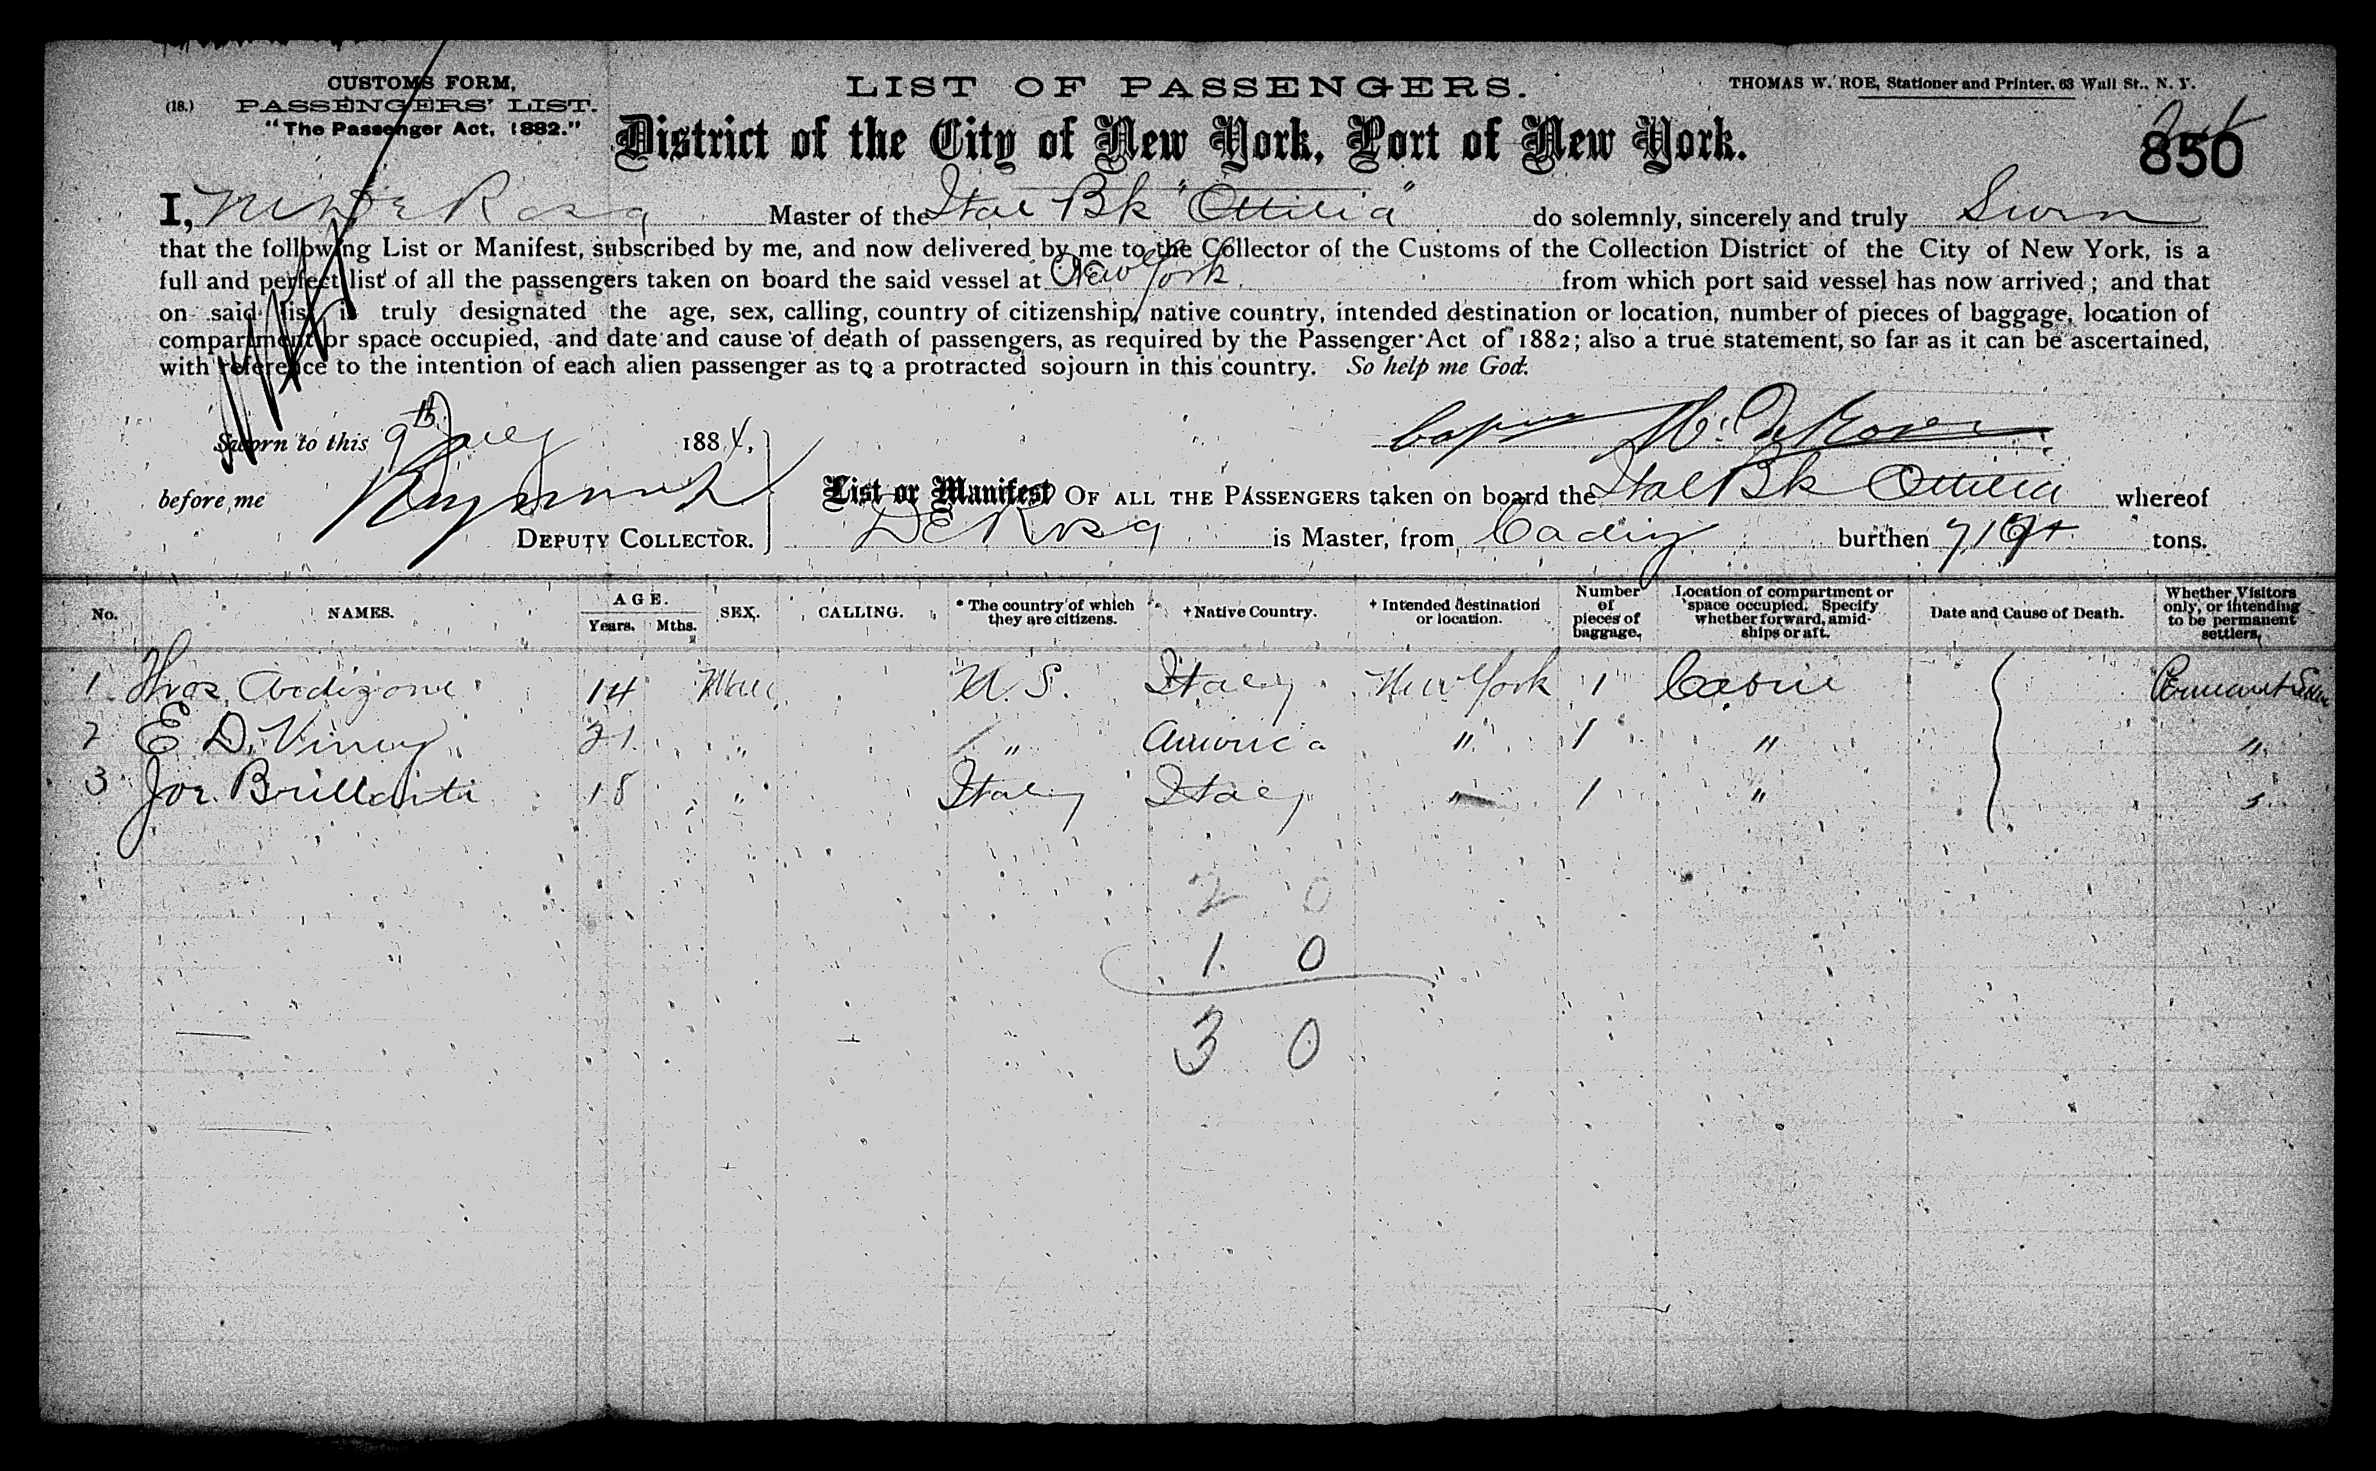 CUSTOMS FORM,
(18.) PASSENGERS' LIST.
"The Passenger Act, 1882."
LIST OF PASSENGERS.
THOMAS W. ROE, Stationer and Printer, 63 Wall St., N. Y.
District of the City of New York, Port of New York.
850
I, M De Rosa Master of the Ital Bk "Ottilia" do solemnly, sincerely and truly Swrn
that the following List or Manifest, subscribed by me, and now delivered by me to the Collector of the Customs of the Collection District of the City of New York, is a
full and perfect list of all the passengers taken on board the said vessel at New York from which port said vessel has now arrived; and that
on said list is truly designated the age, sex, calling, country of citizenship, native country, intended destination or location, number of pieces of baggage, location of
compartment or space occupied, and date and cause of death of passengers, as required by the Passenger Act of 1882; also a true statement, so far as it can be ascertained,
with reference to the intention of each alien passenger as to a protracted sojourn in this country. So help me God.
Sworn to this 9th July 1884,
M. De Rosa
before me
List or Manifest OF ALL THE PASSENGERS taken on board the Ital Bk Ottilia whereof
DEPUTY COLLECTOR.
De Rosa is Master, from Cadiz burthen tons.
No. NAMES. AGE. Years. Mths. SEX. CALLING. * The country of which they are citizens. + Native Country. + Intended destination or location. Number of pieces of baggage. Location of compartment or space occupied. Specify whether forward, amidships or aft. Date and Cause of Death. Whether Visitors only, or intending to be permanent settlers.
1 14 Male U. S. Italy New York 1 Cabin
2 E D. 21 " " America " 1 " "
3 Joe Brillanti 18 " Italy Italy " 1 " "
2 0
1 0
3 0